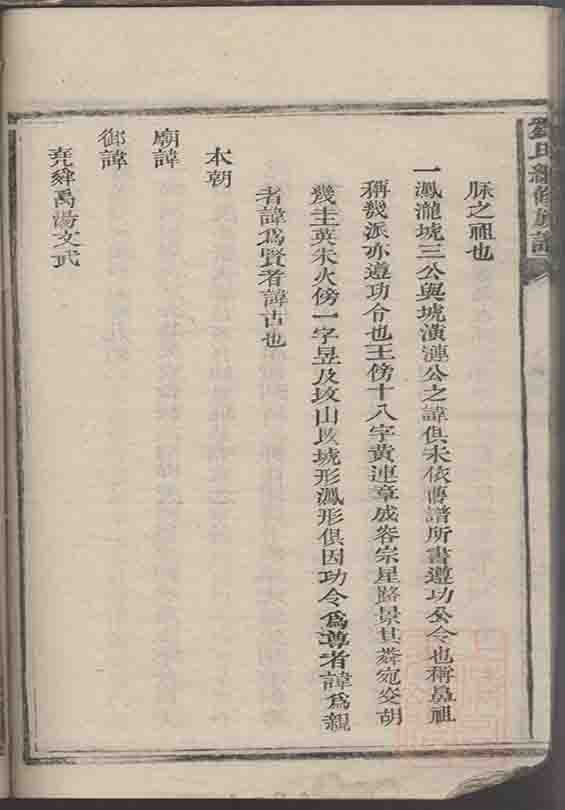 劉氏續修族譜
脉之祖也
一鳳瀧琥三公與琥潢漣公之諱俱未依舊譜所書遵功令也稱鼻祖
稱幾派亦遵功令也王傍十八字黃連章成容宗星路景其舜宛交胡
幾圭英朱火傍一字昱及坟山㟁琥形鳳形俱因功令為尊者諱為親
者諱為賢者諱古也
本朝
廟諱
御諱
堯舜禹湯文武